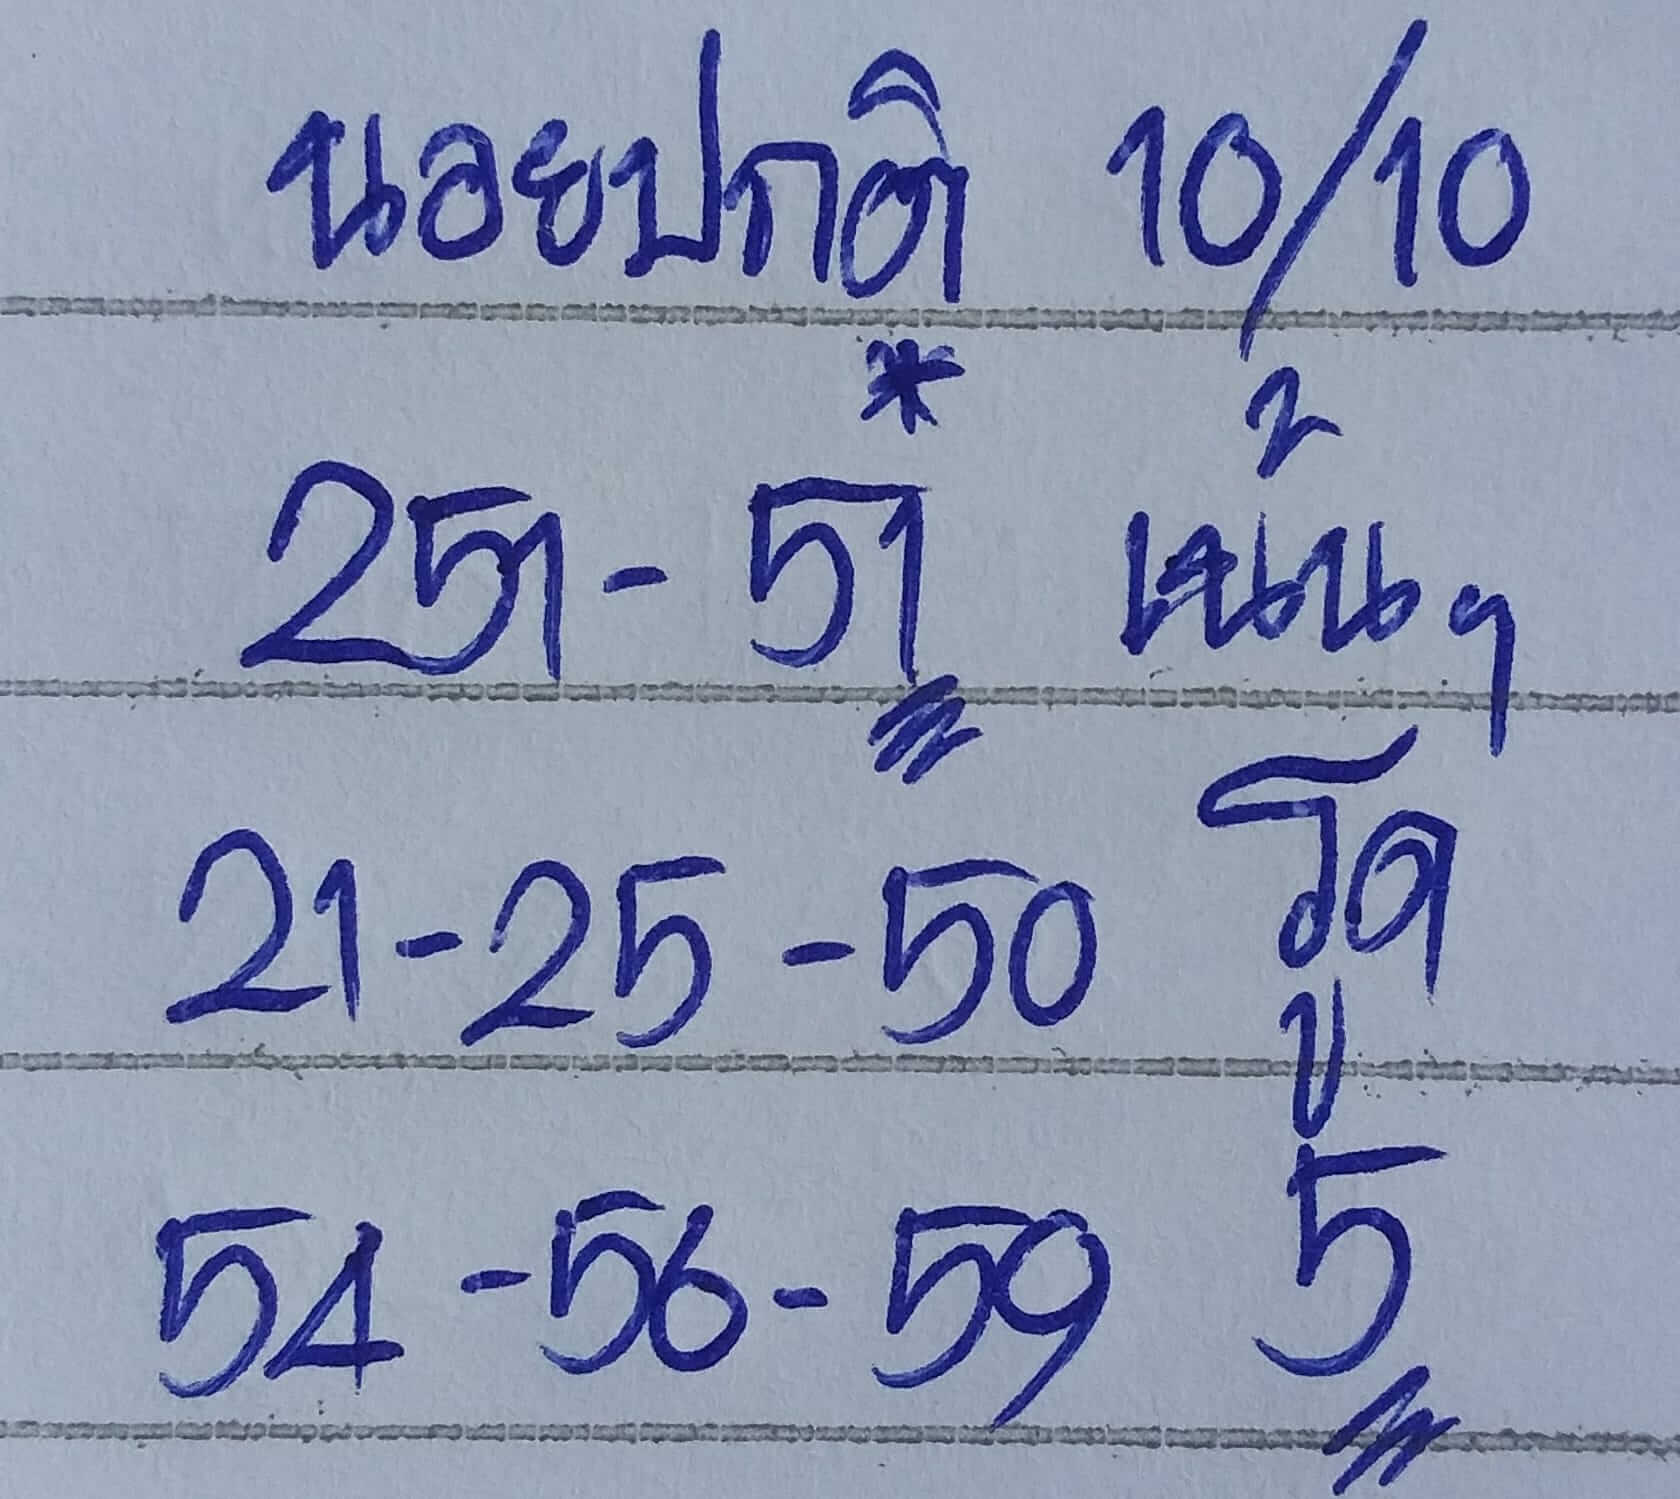 นอยปกติ 10/10
251 - 51 * เน้นๆ
21 - 25 - 50 วิ่งรูด
54 - 56 - 59 5